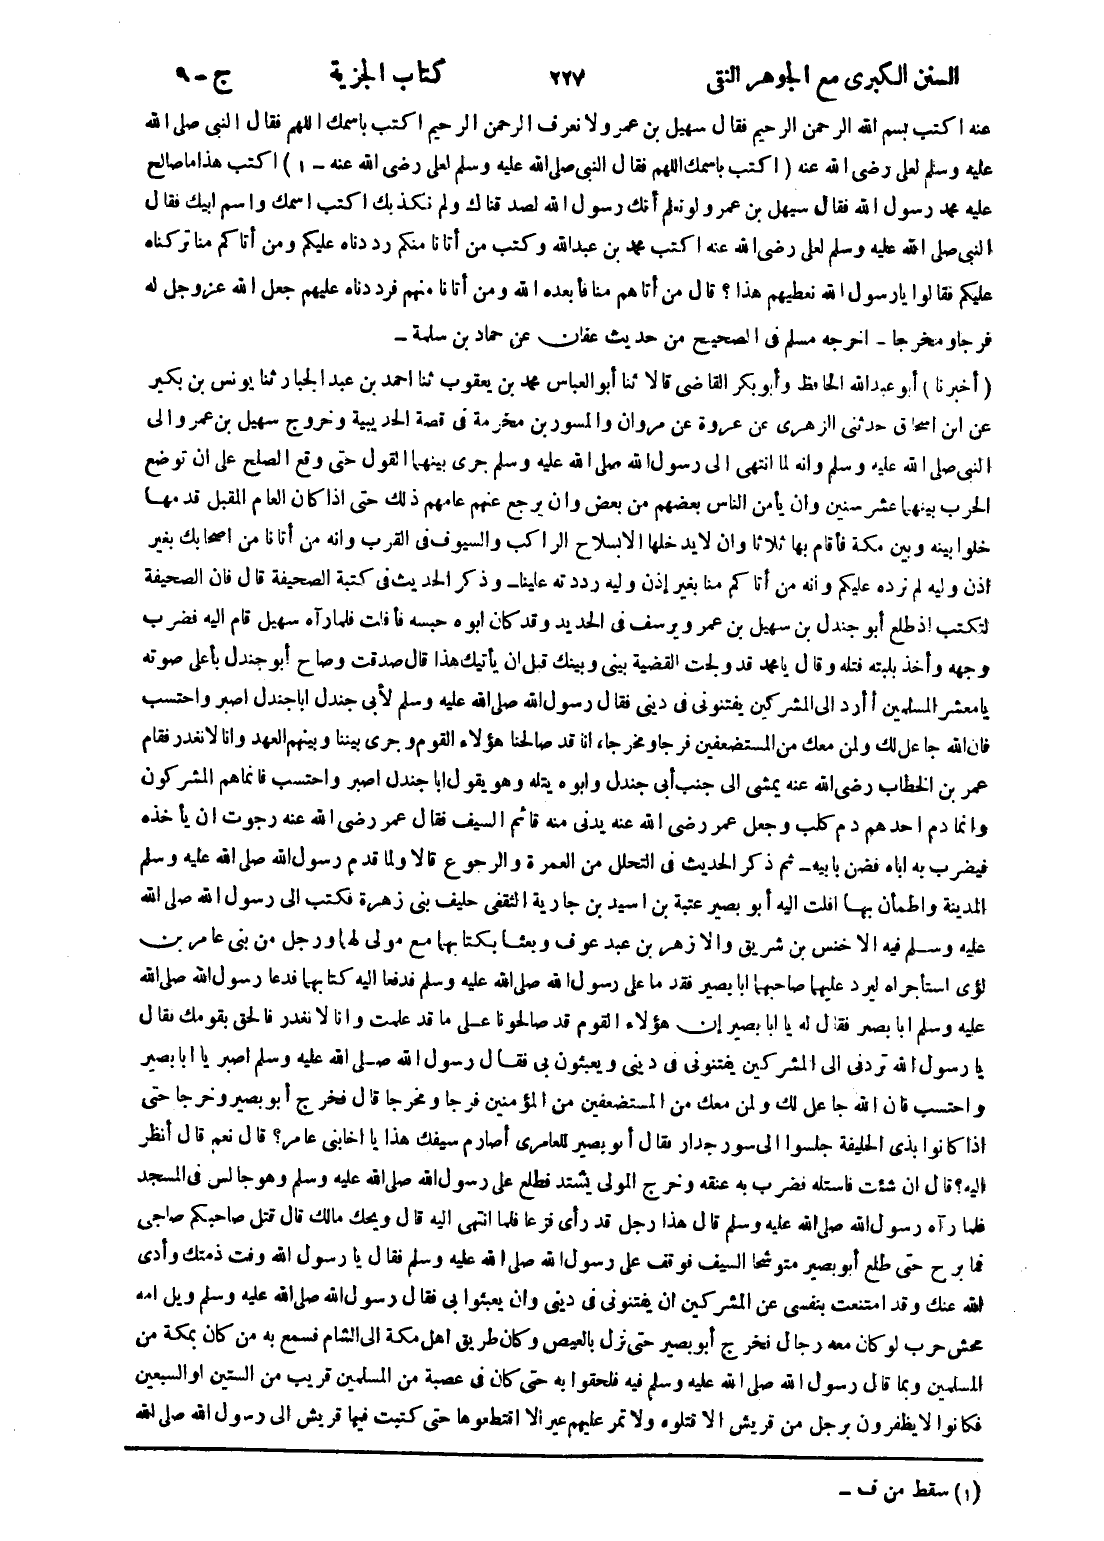 السنن الكبرى مع الجوهر النقى ٢٢٧ كتاب الجزية ج - ٩
عنه اكتب بسم الله الرحمن الرحيم فقال سهيل بن عمرو لا نعرف الرحمن الرحيم اكتب باسمك اللهم فقال النبى صلى الله
عليه وسلم لعلى رضى الله عنه ( اكتب باسمك اللهم فقال النبى صلى الله عليه وسلم لعلى رضى الله عنه - ١ ) اكتب هذا ما صالح
عليه محمد رسول الله فقال سهيل بن عمرو لو نعلم أنك رسول الله لصدقناك ولم نكذبك اكتب اسمك واسم ابيك فقال
النبى صلى الله عليه وسلم لعلى رضى الله عنه اكتب محمد بن عبدالله وكتب من أتانا منكم رددناه عليكم ومن أتاكم منا تركناه
عليكم فقالوا يا رسول الله نعطيهم هذا ؟ قال من أتاهم منا فأبعده الله ومن أتانا منهم فرددناه عليهم جعل الله عزوجل له
فرجا ومخرجا - اخرجه مسلم فى الصحيح من حديث عفان عن حماد بن سلمة -
( أخبرنا ) أبو عبدالله الحافظ وأبو بكر القاضى قالا ثنا أبو العباس محمد بن يعقوب ثنا احمد بن عبد الجبار ثنا يونس بن بكير
عن ابن اسحاق حدثنى الزهرى عن عروة عن مروان والمسور بن مخرمة فى قصة الحديبية وخروج سهيل بن عمرو الى
النبى صلى الله عليه وسلم وانه لما انتهى الى رسول الله صلى الله عليه وسلم جرى بينهما القول حتى وقع الصلح على ان توضع
الحرب بينهما عشر سنين وان يأمن الناس بعضهم من بعض وان يرجع عنهم عامهم ذلك حتى اذا كان العام المقبل قدمها
خلوا بينه وبين مكة فأقام بها ثلاثا وان لا يدخلها الا بسلاح الراكب والسيوف فى القرب وانه من أتانا من اصحابك بغير
اذن وليه لم نرده عليكم وانه من أتاكم منا بغير إذن وليه رددته علينا - وذكر الحديث فى كتبة الصحيفة قال فان الصحيفة
لتكتب اذ طلع أبو جندل بن سهيل بن عمرو يرسف فى الحديد وقد كان ابوه حبسه فأفلت فلما رآه سهيل قام اليه فضرب
وجهه وأخذ بلبته فتله وقال يا محمد قد ولجت القضية بينى وبينك قبل ان يأتيك هذا قال صدقت وصاح أبو جندل بأعلى صوته
يا معشر المسلمين أأرد الى المشركين يفتنونى فى دينى فقال رسول الله صلى الله عليه وسلم لأبى جندل ابا جندل اصبر واحتسب
فان الله جاعل لك ولمن معك من المستضعفين فرجا ومخرجا، انا قد صالحنا هؤلاء القوم وجرى بيننا وبينهم العهد وانا لا نغدر فقام
عمر بن الخطاب رضى الله عنه يمشى الى جنب أبى جندل وابوه يتله وهو يقول ابا جندل اصبر واحتسب فانما هم المشركون
وانما دم احدهم دم كلب وجعل عمر رضى الله عنه يدنى منه قائم السيف فقال عمر رضى الله عنه رجوت ان يأخذه
فيضرب به اباه فضن بابيه - ثم ذكر الحديث فى التحلل من العمرة والرجوع قالا ولما قدم رسول الله صلى الله عليه وسلم
المدينة واطمأن بها افلت اليه أبو بصير عتبة بن اسيد بن جارية الثقفى حليف بنى زهرة فكتب الى رسول الله صلى الله
عليه وسلم فيه الاخنس بن شريق والازهر بن عبد عوف وبعثا بكتابهما مع مولى لهما ورجل من بنى عامر بن
لؤى استأجراه ليرد عليهما صاحبهما ابا بصير فقدما على رسول الله صلى الله عليه وسلم فدفعا اليه كتابهما فدعا رسول الله صلى الله
عليه وسلم ابا بصير فقال له يا ابا بصير إن هؤلاء القوم قد صالحونا على ما قد علمت وانا لا نغدر فالحق بقومك فقال
يا رسول الله تردنى الى المشركين يفتنونى فى دينى ويعبثون بى فقال رسول الله صلى الله عليه وسلم اصبر يا ابا بصير
واحتسب فان الله جاعل لك ولمن معك من المستضعفين من المؤمنين فرجا ومخرجا قال فخرج أبو بصير وخرجا حتى
اذا كانوا بذى الحليفة جلسوا الى سور جدار فقال أبو بصير للعامرى أصارم سيفك هذا يا اخا بنى عامر؟ قال نعم قال أنظر
اليه؟ قال ان شئت فاستله فضرب به عنقه وخرج المولى يشتد فطلع على رسول الله صلى الله عليه وسلم وهو جالس فى المسجد
فلما رآه رسول الله صلى الله عليه وسلم قال هذا رجل قد رأى فزعا فلما انتهى اليه قال ويحك مالك قال قتل صاحبكم صاحبى
فما برح حتى طلع أبو بصير متوشحا السيف فوقف على رسول الله صلى الله عليه وسلم فقال يا رسول الله وفت ذمتك وأدى
الله عنك وقد امتنعت بنفسى عن المشركين ان يفتنونى فى دينى وان يعبثوا بى فقال رسول الله صلى الله عليه وسلم ويل امه
محش حرب لو كان معه رجال فخرج أبو بصير حتى نزل بالعيص وكان طريق اهل مكة الى الشام فسمع به من كان بمكة من
المسلمين وبما قال رسول الله صلى الله عليه وسلم فيه فلحقوا به حتى كان فى عصبة من المسلمين قريب من الستين او السبعين
فكانوا لا يظفرون برجل من قريش الا قتلوه ولا تمر عليهم عير الا اقتطعوها حتى كتبت فيها قريش الى رسول الله صلى الله
(١) سقط من ف -